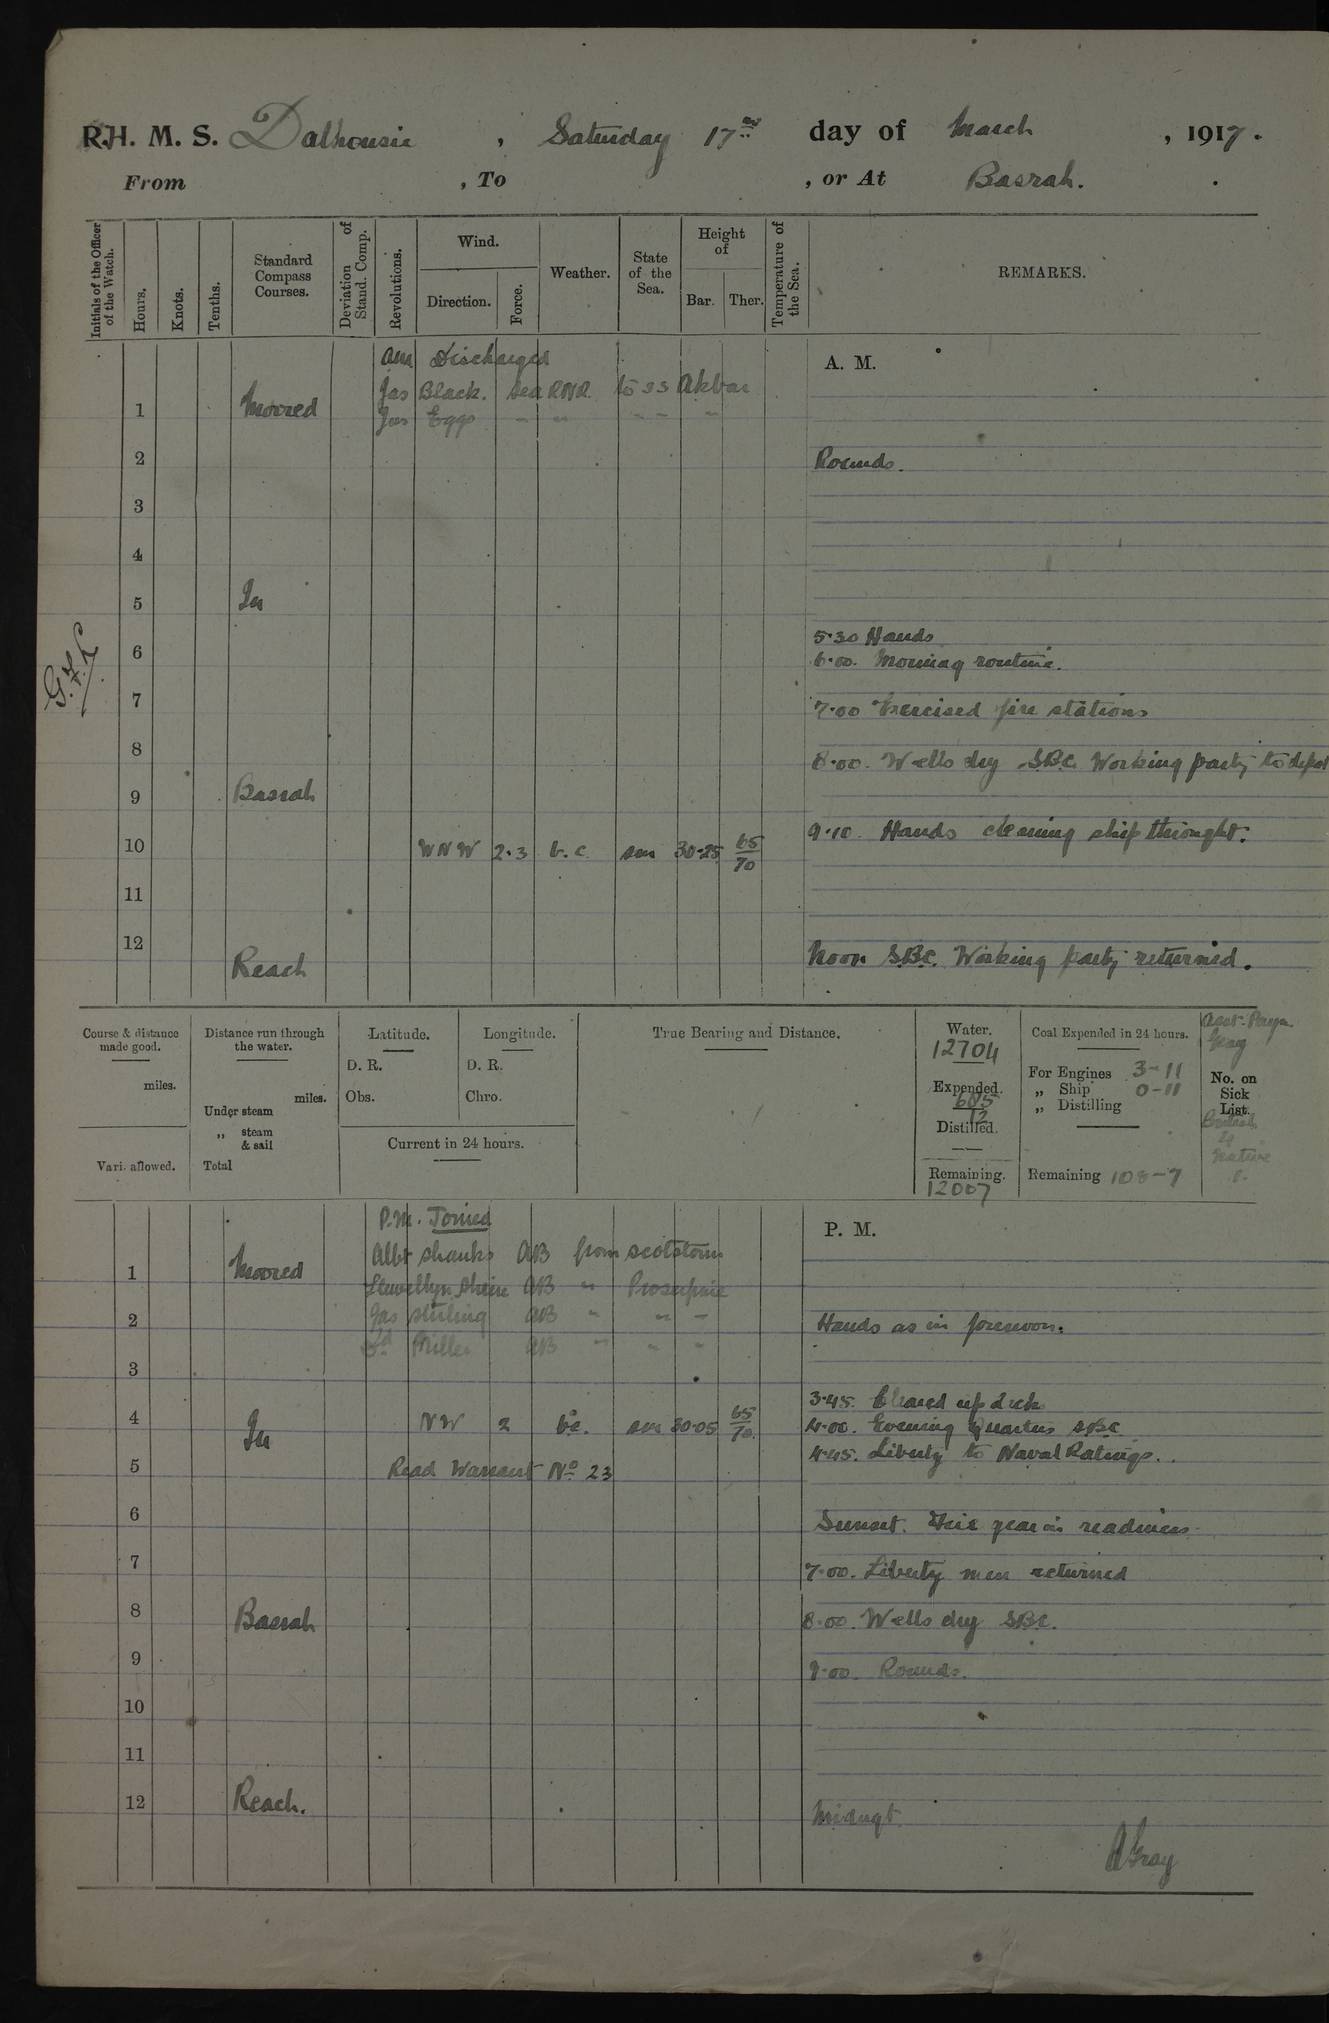 R.H. M. S. Dalhousie , Saturday 17th day of March , 1917.
From , To , or At Basrah.
Initials of the Officer of the Watch.
Hours.
Knots.
Tenths.
Standard Compass Courses.
Deviation of Stand. Comp.
Revolutions.
Wind.
Direction.
Force.
Weather.
State of the Sea.
Height of
Bar.
Ther.
Temperature of the Sea.
REMARKS.
A. M.
am Discharged
Jas Black. Sea RNR. to SS Akbar
Jas Eggo " " " " "
1 Moored
2 Rounds.
3
4
5 In
5.30 Hands
6 6.00. Morning routine.
7 7.00 Exercised fire stations
8 8.00. Wells dry SBC. Working party to depot
9 Basrah
9.10. Hands cleaning ship throught.
10 WNW 2.3 b.c. sm 30.25 65/70
11
12 Noon SBC. Working party returned.
Reach
Course & distance made good.
miles.
Vari. allowed.
Distance run through the water.
miles.
Under steam
„ steam & sail
Total
Latitude.
D. R.
Obs.
Longitude.
D. R.
Chro.
Current in 24 hours.
True Bearing and Distance.
Water.
12704
Expended.
685
12
Distilled.
Remaining.
12007
Coal Expended in 24 hours.
For Engines 3-11
„ Ship 0-11
„ Distilling
Remaining 108-7
Gray
No. on Sick List.
British
4
Native
P. M.
P.M. Joined
Albt Shanks AB from Scotstoun
Llewellyn AB " Proserpine
Jas Stirling AB " " "
Miller AB " " "
1 Moored
2 Hands as in forenoon.
3
3.45. Cleared up deck
4 NW 2 bc. sm 30.05 65/70. 4.00. Evening Quarters SBC
In
4.45. Liberty to Naval Ratings.
5 Read Warrant No 23
6 Sunset. Fire gear in readiness
7 7.00. Liberty men returned
8 Basrah 8.00. Wells dry SBC.
9 9.00. Rounds.
10
11
12 Reach. Midngt.
A Gray